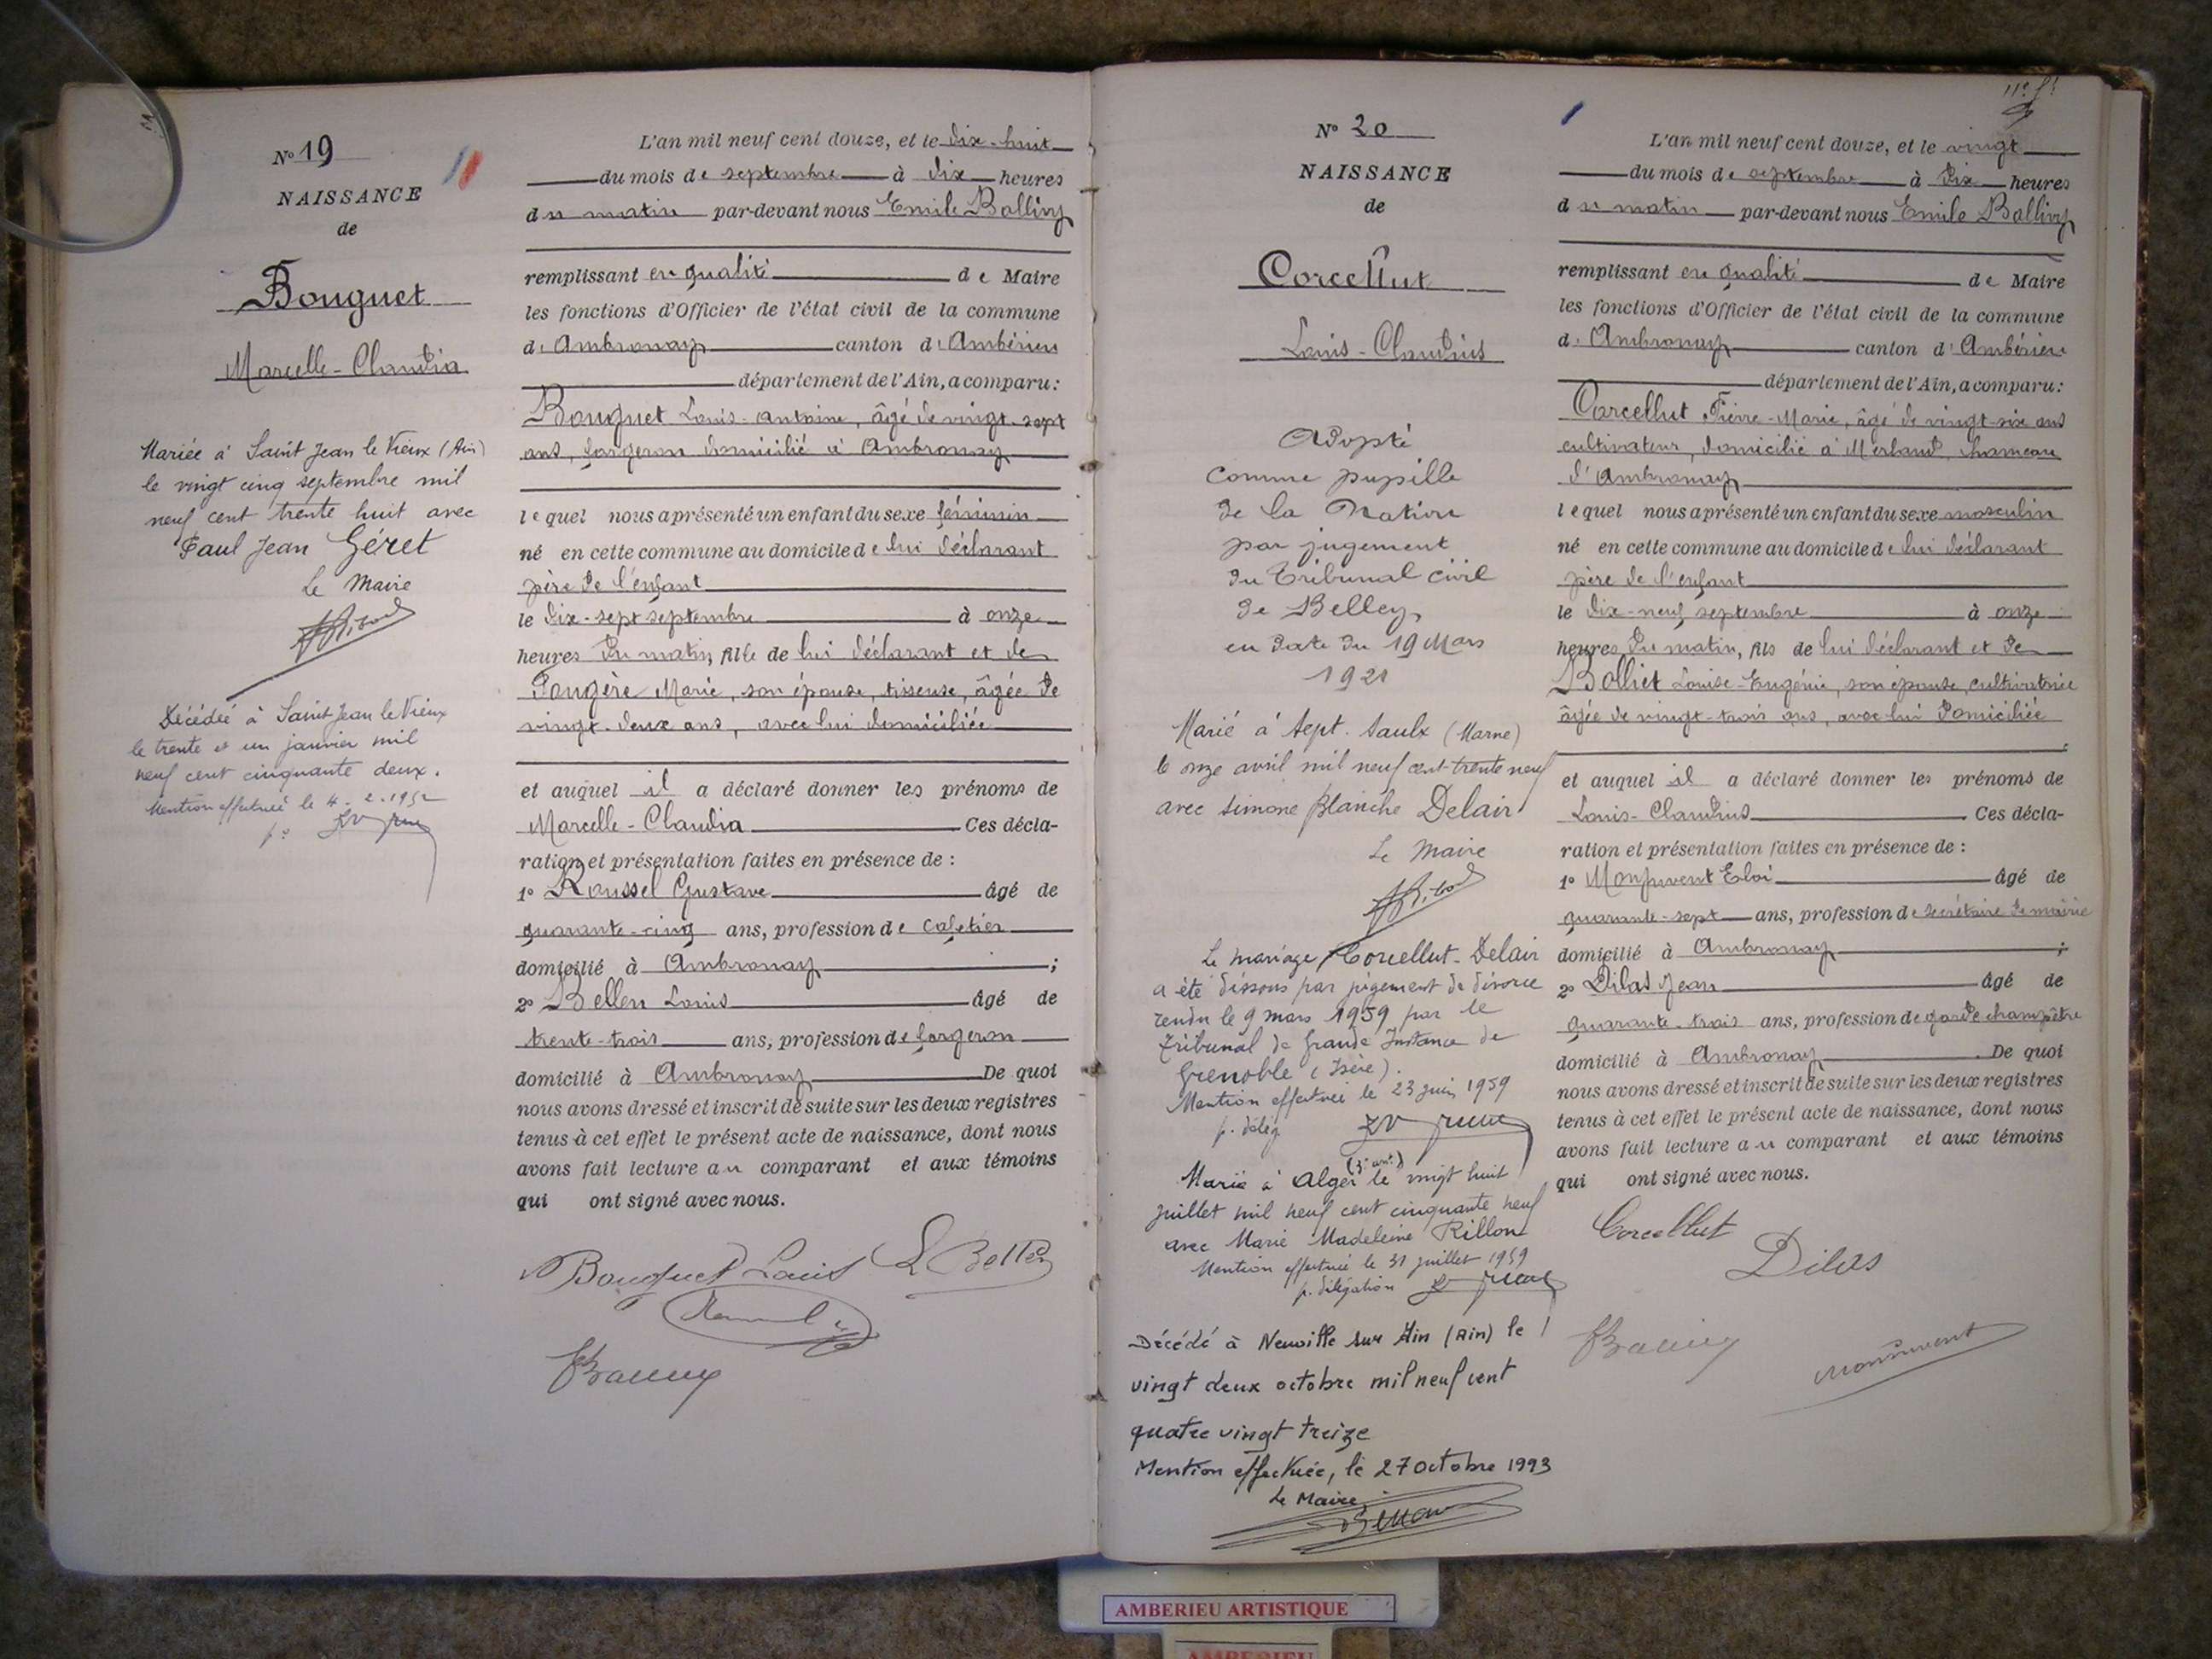 Nº 19
NAISSANCE
de
Bouguet
Marcelle-Claudia
Mariée à Saint Jean le Vieux (Ain)
le vingt cinq septembre mil
neuf cent trente huit avec
Paul Jean Géret
Le Maire
Décédée à Saint Jean le Vieux
le trente et un janvier mil
neuf cent cinquante deux.
Mention effectuée le 4-2-1952
L'an mil neuf cent douze, et le dix-huit
du mois de septembre à dix heures
du matin par-devant nous Emile Ballivy
remplissant en qualité de Maire
les fonctions d'Officier de l'état civil de la commune
d'Ambronay canton d'Ambérieu
département de l'Ain, a comparu:
Bouguet Louis-Antoine, âgé de vingt-sept
ans, forgeron domicilié à Ambronay
lequel nous a présenté un enfant du sexe féminin
né en cette commune au domicile de lui déclarant
père de l'enfant
le dix-sept septembre à onze
heures du matin, fille de lui déclarant et de
Fougère Marie, son épouse, tisseuse, âgée de
vingt-deux ans, avec lui domiciliée
et auquel il a déclaré donner les prénoms de
Marcelle-Claudia Ces décla-
ration et présentation faites en présence de :
1º Roussel Gustave âgé de
quarante-cinq ans, profession de cafetier
domicilié à Ambronay ;
2º Bellen Louis âgé de
trente-trois ans, profession de forgeron
domicilié à Ambronay De quoi
nous avons dressé et inscrit de suite sur les deux registres
tenus à cet effet le présent acte de naissance, dont nous
avons fait lecture au comparant et aux témoins
qui ont signé avec nous.
Bouguet Louis L Bellen
11e ft
Nº 20
NAISSANCE
de
Corcellut
Louis-Claudius
Adopté
comme pupille
de la Nation
par jugement
du Tribunal civil
de Belley
en date du 19 Mars
1921
Marié à Sept-Saulx (Marne)
le onze avril mil neuf cent trente neuf
avec Simone Blanche Delair
Le Maire
Le mariage Corcellut-Delair
a été dissous par jugement de divorce
rendu le 9 mars 1959 par le
Tribunal de Grande Instance de
Grenoble (Isère).
Mention effectuée le 23 juin 1959
p. délég
Marié à Alger (3e arrt) le vingt huit
juillet mil neuf cent cinquante neuf
avec Marie Madeleine Rillon
Mention effectuée le 31 juillet 1959
p. délégation
Décédé à Neuville sur Ain (Ain) le
vingt deux octobre mil neuf cent
quatre vingt treize
Mention effectuée, le 27 octobre 1993
Le Maire,
L'an mil neuf cent douze, et le vingt
du mois de septembre à dix heures
du matin par-devant nous Emile Ballivy
remplissant en qualité de Maire
les fonctions d'Officier de l'état civil de la commune
d'Ambronay canton d'Ambérieu
département de l'Ain, a comparu:
Corcellut Pierre-Marie, âgé de vingt-six ans
cultivateur, domicilié à Merland, hameau
d'Ambronay
lequel nous a présenté un enfant du sexe masculin
né en cette commune au domicile de lui déclarant
père de l'enfant
le dix-neuf septembre à onze
heures du matin, fils de lui déclarant et de
Bolliet Louise-Eugénie, son épouse, cultivatrice
âgée de vingt-trois ans, avec lui domiciliée
et auquel il a déclaré donner les prénoms de
Louis-Claudius Ces décla-
ration et présentation faites en présence de :
1º Monjuvent Eloi âgé de
quarante-sept ans, profession de secrétaire de mairie
domicilié à Ambronay ;
2º Dilas Jean âgé de
quarante-trois ans, profession de garde champêtre
domicilié à Ambronay. De quoi
nous avons dressé et inscrit de suite sur les deux registres
tenus à cet effet le présent acte de naissance, dont nous
avons fait lecture au comparant et aux témoins
qui ont signé avec nous.
Corcellut
Dilas
Monjuvent
AMBERIEU ARTISTIQUE
AMBERIEU